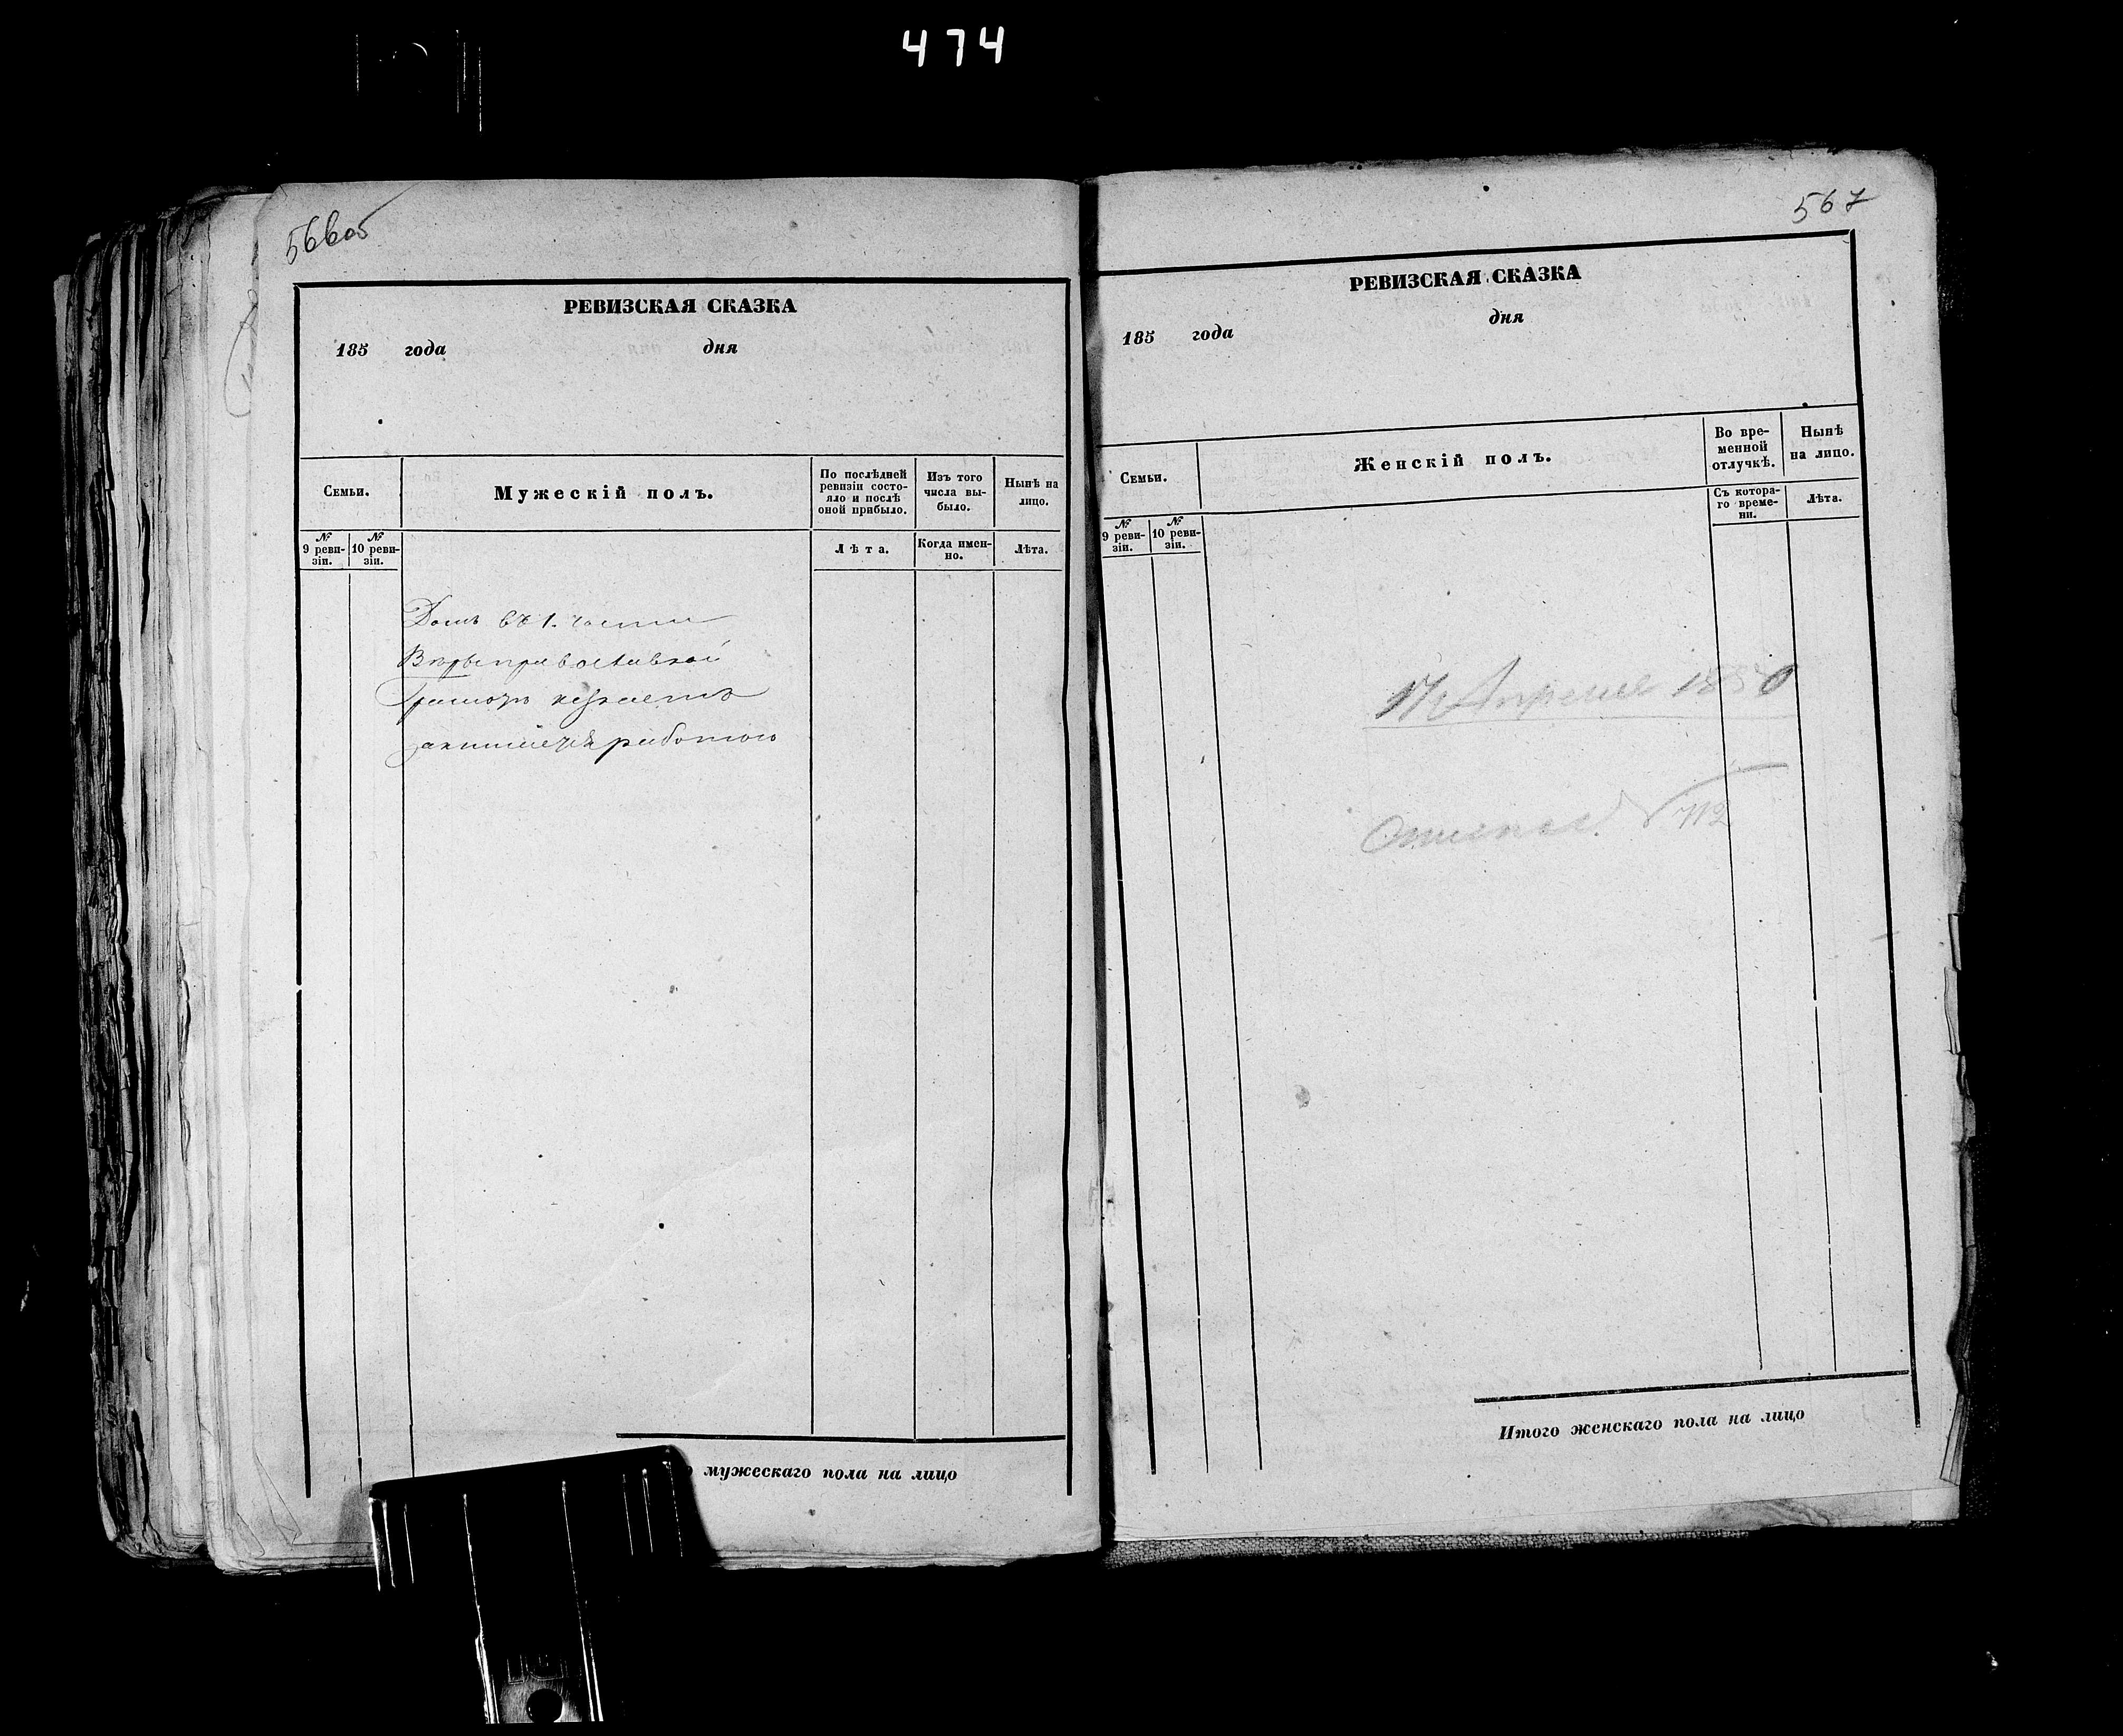 474
566об
РЕВИЗСКАЯ СКАЗКА
185 года дня
Семьи.
Мужескій полъ.
По послѣдней
ревизіи состо-
яло и послѣ
оной прибыло.
Изъ того
числа вы-
было.
Нынѣ на
лицо.
№
9 реви-
зіи.
№
10 реви-
зіи.
Лѣта.
Когда имен-
но.
Лѣта.
Домъ въ 1. части
Вѣры православной
Грамотѣ незнаетъ
занимается работою
мужескаго пола на лицо
567
РЕВИЗСКАЯ СКАЗКА
185 года дня
Семьи.
Женскій полъ.
Во вре-
менной
отлучкѣ.
Нынѣ
на лицо.
№
9 реви-
зіи.
№
10 реви-
зіи.
Съ котора-
го време-
ни.
Лѣта.
17 Апреля 1850
712
Итого женскаго пола на лицо